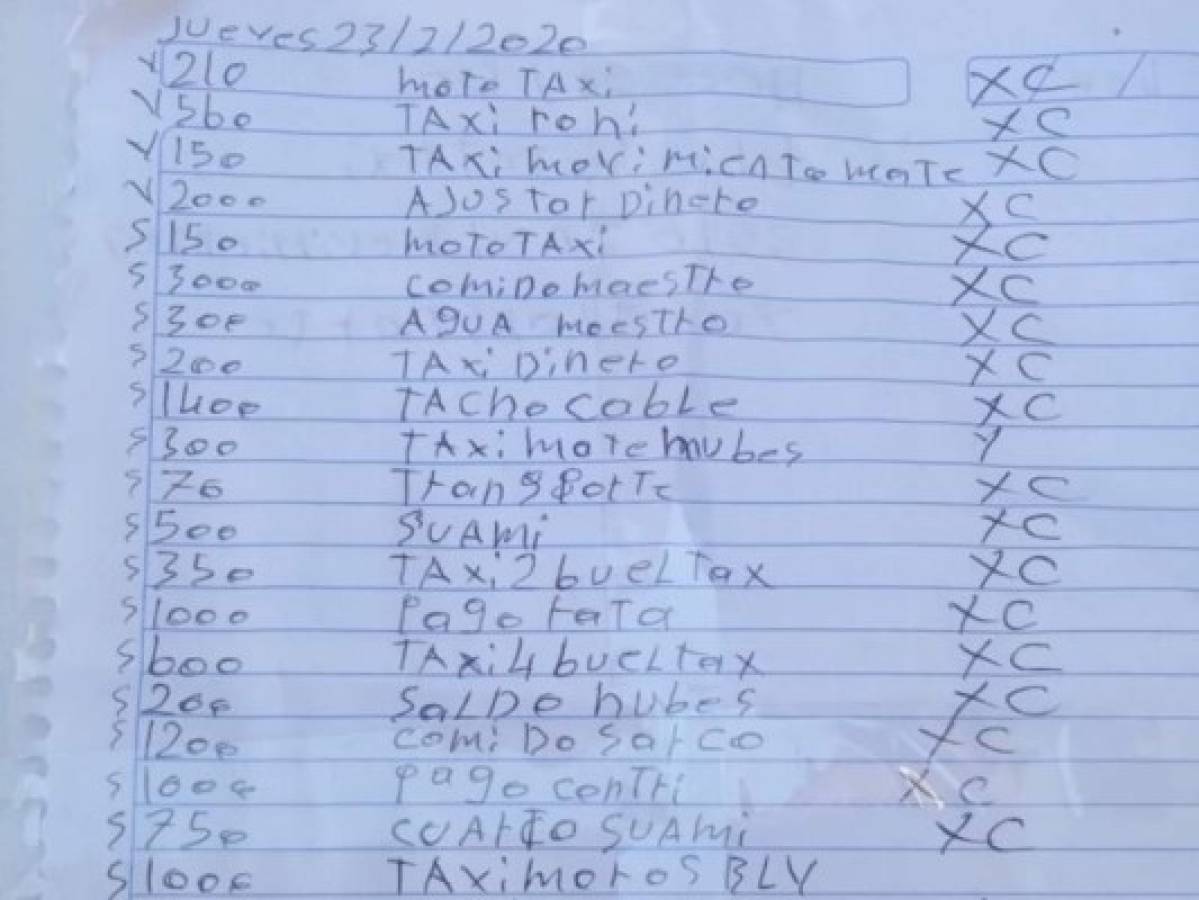 Jueves 23/2/2020
V 210 moto TAxi XC
V 560 TAxi rohi XC
V 150 TAxi movimiento mate XC
V 2000 AJUSTar Dinero XC
S 150 moto TAxi XC
S 3000 comiDa maesTro XC
S 300 AgUA maesTro XC
S 200 TAxi Dinero XC
S 1400 TAcho cabLe XC
S 300 TAxi mate nubes Y
S 70 TransporTe XC
S 500 SUAmi XC
S 350 TAxi 2 bueLTax XC
S 1000 Pago raTa XC
S 600 TAxi 4 bueLtax XC
S 200 SaLDo nubes XC
S 1200 comiDa Sarco XC
S 1000 Pago conTri XC
S 750 CUArTo SUAmi XC
S 1000 TAxi moros BLV